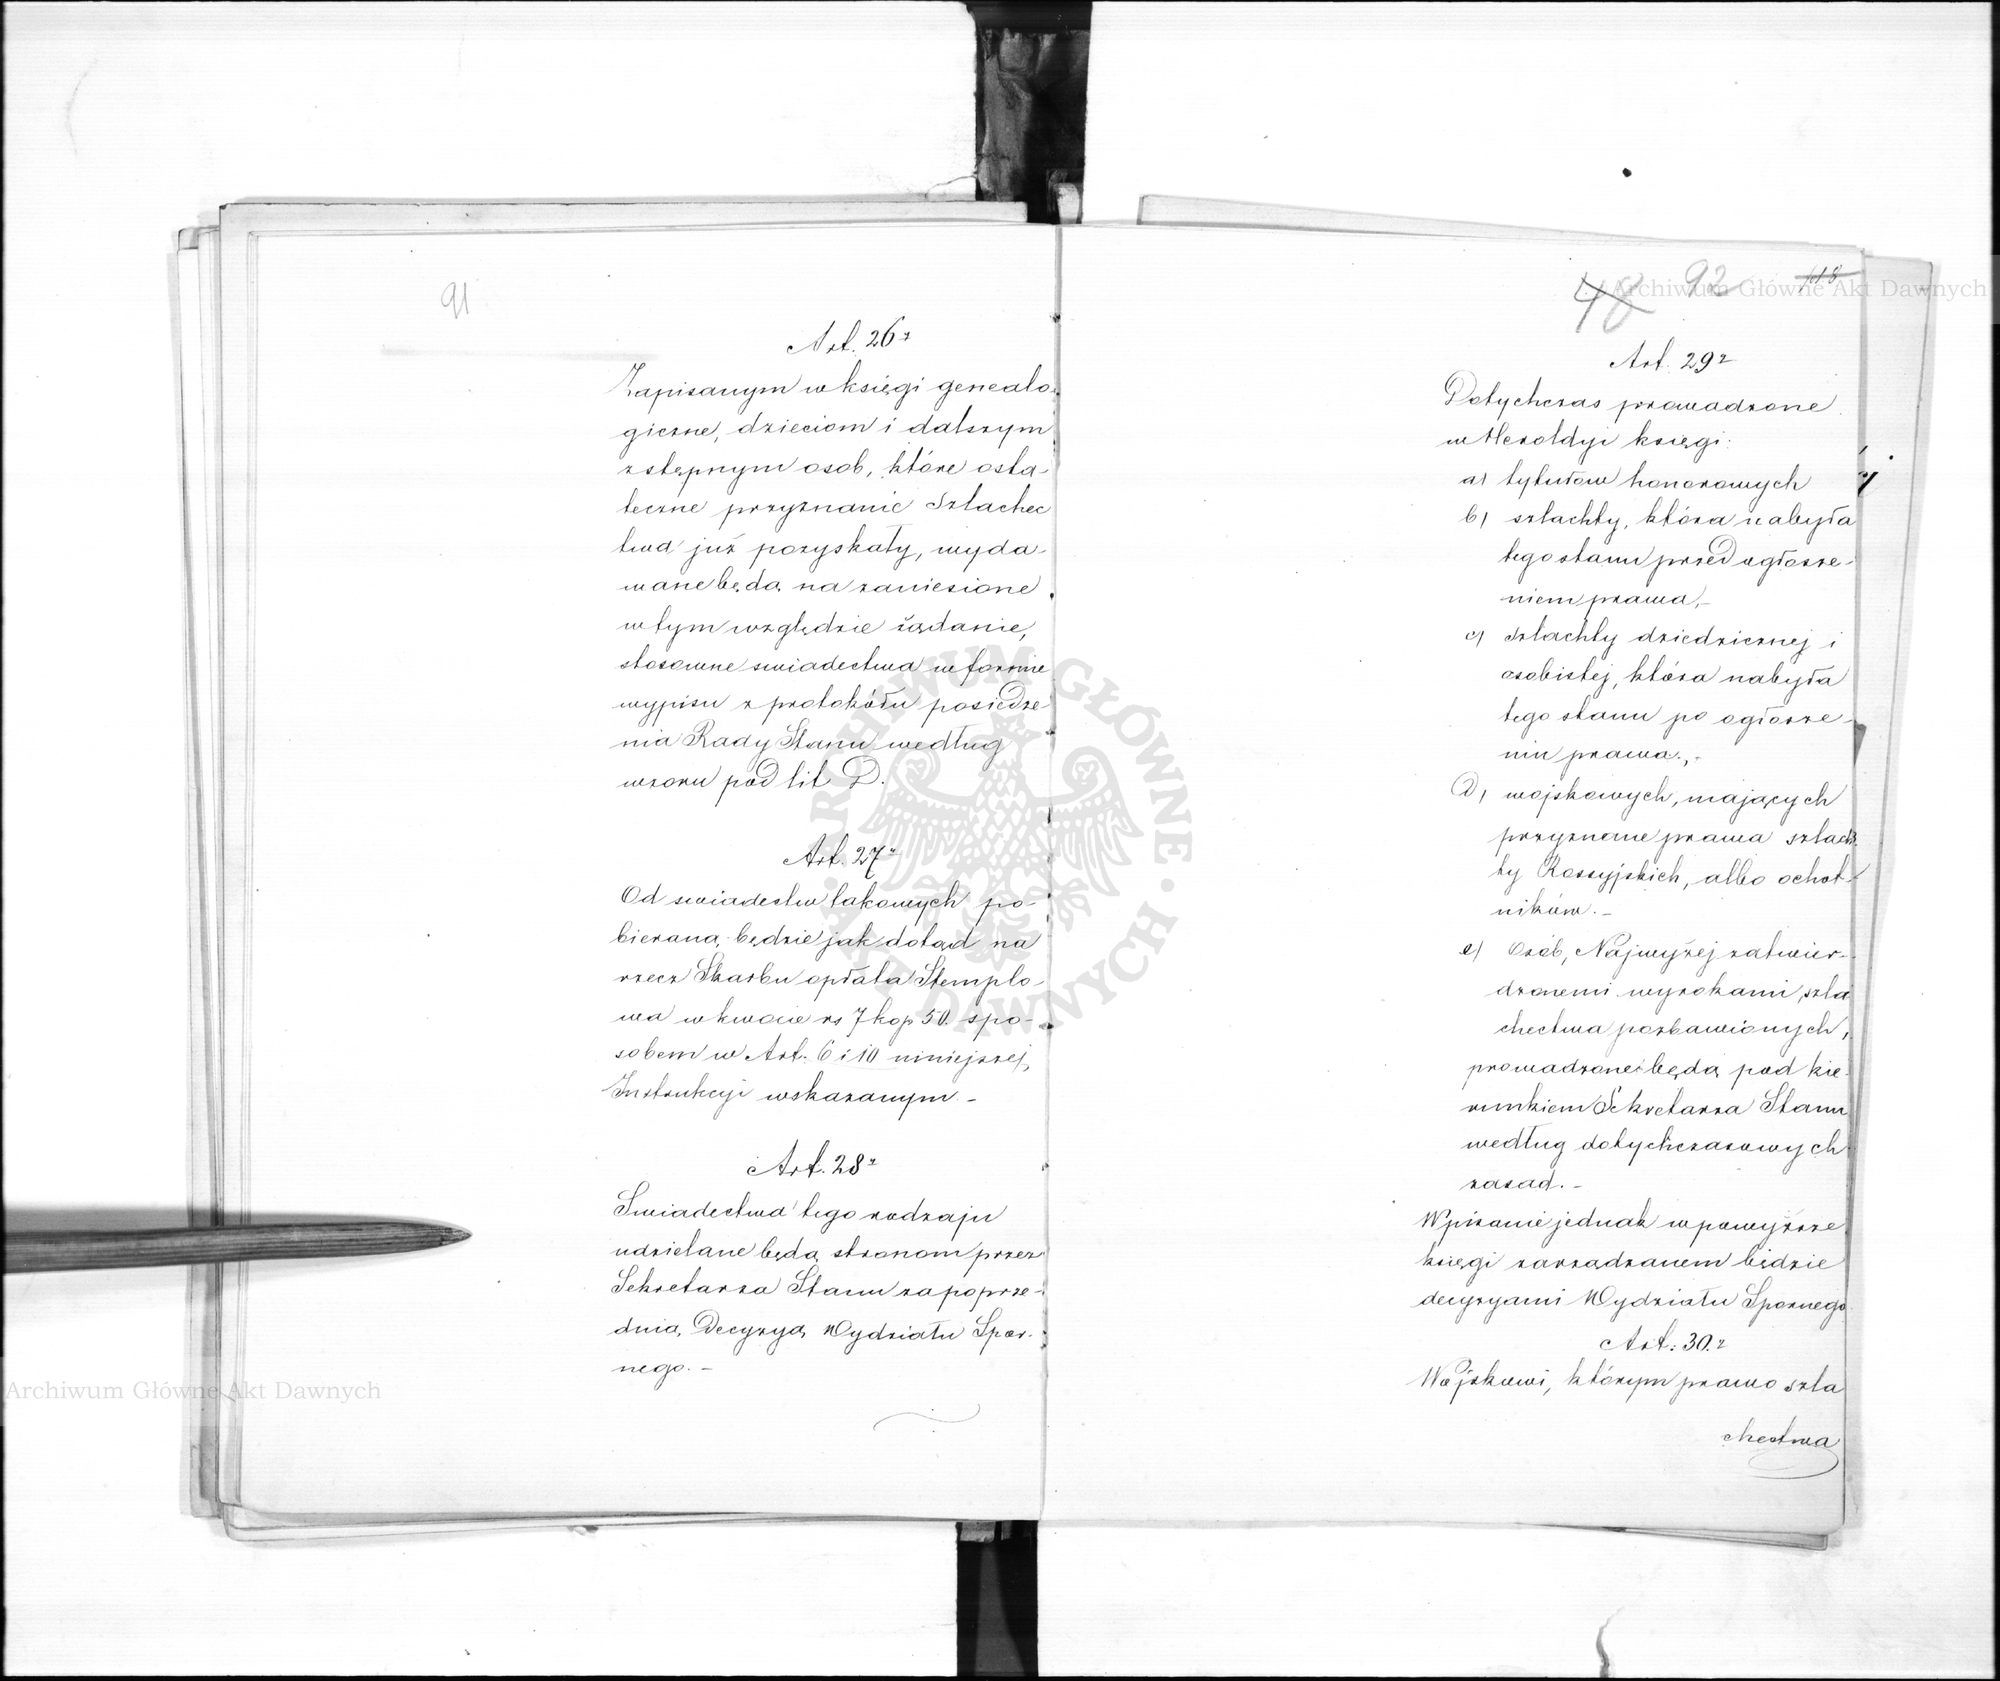 91
Art. 26.
Zapisanym w księgi genealo-
giczne, dzieciom i dalszym
zstępnym osob, które osta-
teczne przyznanie Szlachec
twa już pozyskały, wyda-
wane będą na zaniesione
w tym względzie żądanie,
stosowne swiadectwa w formie
wypisu z protokółu posiedze
nia Rady Stanu według
wzoru pod lit D.
Art. 27.
Od swiadectw takowych po-
bierana będzie jak dotąd na
rzecz Skarbu opłata Stemplo-
wa w kwocie rs 7 kop 50. spo-
sobem w Art. 6 i 10 niniejszej
Instrukcyi wskazanym. -
Art. 28.
Swiadectwa tego rodzaju
udzielane będą stronom przez
Sekretarza Stanu za poprze-
dnią Decyzyą Wydziału Spor-
nego. -
48 92 118
Art. 29.
Dotychczas prowadzone
w Heroldyi księgi:
a) tytułów honorowych
b) szlachty, która nabyła
tego stanu przed ogłosze-
niem prawa, -
c) Szlachty dziedzicznej i
osobistej, która nabyła
tego stanu po ogłosze-
niu prawa., -
d) wojskowych, mających
przyznane prawa szlach-
ty Rossyjskich, albo ochot-
ników. -
e) Osób, Najwyżej zatwier-
dzonemi wyrokami, szla
chectwa pozbawionych,
prowadzone będą pod kie-
runkiem Sekretarza Stanu
według dotychczasowych
zasad. -
Wpisanie jednak w powyższe
księgi zarządzanem będzie
decyzyami Wydziału Spornego.
Art. 30.
Wojskowi, którym prawo szla
chectwa
Archiwum Główne Akt Dawnych
Archiwum Główne Akt Dawnych
ARCHIWUM GŁÓWNE AKT DAWNYCH